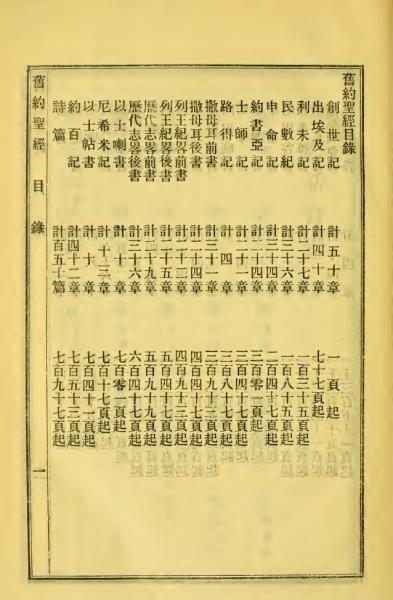 舊約聖經目錄
創世記 計五十章 一頁起
出埃及記 計四十章 七十七頁起
利未記 計二十七章 一百三十五頁起
民數紀 計三十六章 一百八十五頁起
申命記 計三十四章 二百四十七頁起
約書亞記 計二十四章 三百零一頁起
士師記 計二十一章 三百四十七頁起
路得記 計四章 三百八十七頁起
撒母耳前書 計三十一章 三百九十三頁起
撒母耳後書 計二十四章 四百四十七頁起
列王紀畧前書 計二十二章 四百九十三頁起
列王紀畧後書 計二十五章 五百四十七頁起
歷代志畧前書 計二十九章 五百九十七頁起
歷代志畧後書 計三十六章 六百四十七頁起
以士喇書 計十章 七百零一頁起
尼希米記 計十三章 七百十七頁起
以士帖書 計十章 七百四十一頁起
約百記 計四十二章 七百五十三頁起
詩篇 計百五十篇 七百九十七頁起
舊約聖經 目錄 一